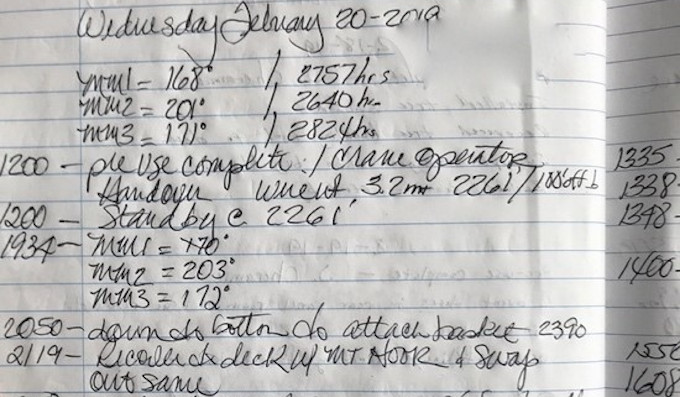 Wednesday February 20-2019
mm1 = 168° / 2757hrs
mm2 = 201° / 2640hr
mm3 = 171° / 2824hrs
1200 - pre use complete / Crane operator
Handover 3.2mt 2261 /
1200 - Standby @ 2261'
1934 - mm1 = 170°
mm2 = 203°
mm3 = 172°
2050 - down to bottom to attach basket 2390
2119 - Recover to deck w/ MT HOOK & Swap
out same
1335 -
1338 -
1348 -
1400 -
1550
1608